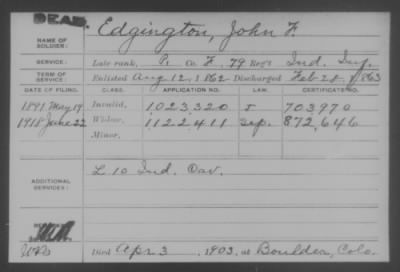 DEAD.
NAME OF SOLDIER: Edgington, John F.
SERVICE: Late rank, P. Co. F, 79 Reg't Ind. Inf.
TERM OF SERVICE: Enlisted Aug 12, 1862 Discharged Feb 28, 1863
DATE OF FILING. CLASS. APPLICATION NO. LAW. CERTIFICATE NO.
1891 May 19 Invalid, 1023,320 J 703970
1918 June 22 Widow, 1122411 Sep. 872,646
Minor,
ADDITIONAL SERVICES: L 10 Ind. Cav.
Died Apr 3, 1903, at Boulder, Colo.